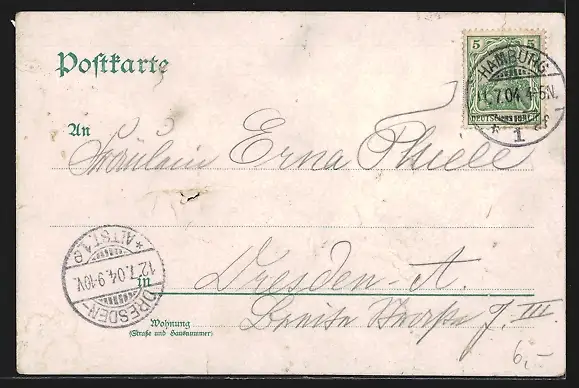 Postkarte
5 5
DEUTSCHES REICH
HAMBURG
11.7.04. 4-5N.
* 1 f
An
Fräulein Erna Thiele
DRESDEN-ALTST. 1 e
12.7.04. 9-10V.
in
Dresden-A.
Breite Straße 7. III.
Wohnung
(Straße und Hausnummer)
6,-